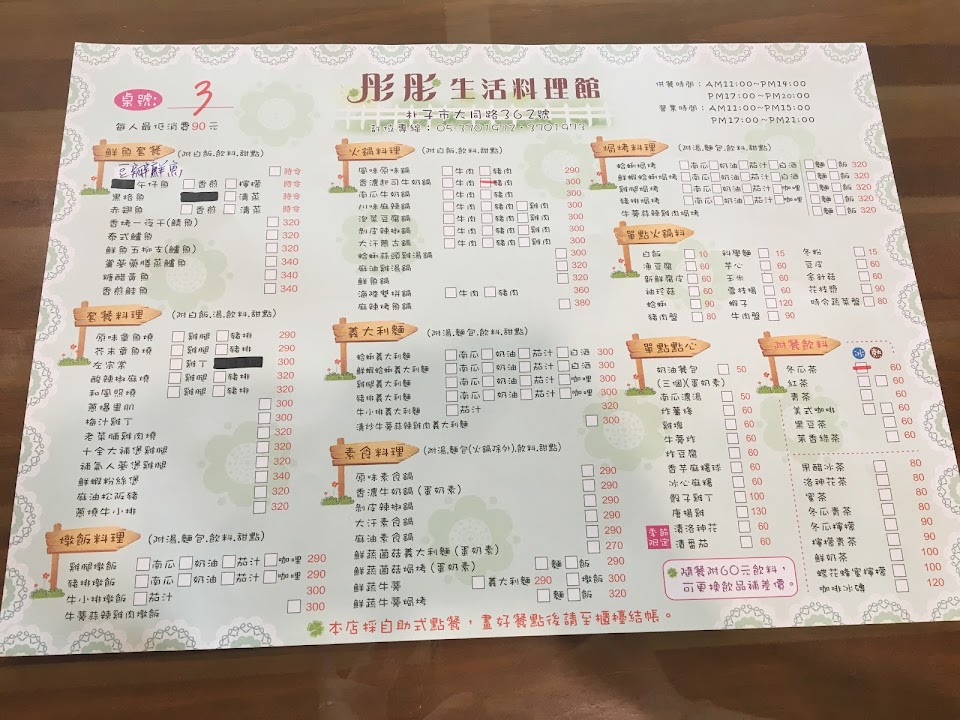 彤彤 生活料理館
朴子市大同路362號
訂位專線：05-3701972‧3701973
供餐時間：AM11:00~PM14:00
PM17:00~PM20:00
營業時間：AM11:00~PM15:00
PM17:00~PM21:00
桌號: 3
每人最低消費90元
鮮魚套餐 (附白飯,飲料,甜點)
豆瓣鮮魚 時令
午仔魚 香煎 檸檬 時令
黑格魚 清蒸 時令
赤翅魚 香煎 清蒸 時令
香烤一夜干(鯖魚) 320
泰式鱸魚 320
鮮魚五柳支(鱸魚) 320
薑蔘藥膳蒸鱸魚 340
糖醋黃魚 340
香煎鮭魚 340
套餐料理 (附白飯,湯,飲料,甜點)
原味章魚燒 雞腿 豬排 290
芥末章魚燒 雞腿 豬排 290
左宗棠 雞丁 300
酸辣椒麻燒 雞腿 豬排 320
和風照燒 雞腿 豬排 300
蔥爆里肌 300
梅汁雞丁 300
老菜脯雞肉燒 320
十全大補煲雞腿 320
補氣人蔘煲雞腿 320
鮮蝦粉絲煲 340
麻油松阪豬 320
蔥燒牛小排 320
燉飯料理 (附湯,麵包,飲料,甜點)
雞腿燉飯 南瓜 奶油 茄汁 咖哩 290
豬排燉飯 南瓜 奶油 茄汁 咖哩 290
牛小排燉飯 茄汁 300
牛蒡蒜辣雞肉燉飯 300
火鍋料理 (附白飯,飲料,甜點)
風味原味鍋 牛肉 豬肉 290
香濃起司牛奶鍋 牛肉 豬肉 300
南瓜牛奶鍋 牛肉 豬肉 300
川味麻辣鍋 牛肉 豬肉 雞肉 300
泡菜豆腐鍋 牛肉 豬肉 300
剝皮辣椒鍋 牛肉 豬肉 雞肉 300
大汗蒙古鍋 牛肉 豬肉 雞肉 300
蛤蜊蒜頭雞湯鍋 300
麻油雞湯鍋 320
鮮魚鍋 320
海陸雙拼鍋 牛肉 豬肉 360
麻辣烤魚鍋 380
義大利麵 (附湯,麵包,飲料,甜點)
蛤蜊義大利麵 南瓜 奶油 茄汁 白酒 300
鮮蝦蛤蜊義大利麵 南瓜 奶油 茄汁 白酒 300
雞腿義大利麵 南瓜 奶油 茄汁 咖哩 300
豬排義大利麵 南瓜 奶油 茄汁 咖哩 300
牛小排義大利麵 茄汁
清炒牛蒡蒜辣雞肉義大利麵 300
素食料理 (附湯,麵包(火鍋除外),飲料,甜點)
原味素食鍋 290
香濃牛奶鍋(蛋奶素) 290
剝皮辣椒鍋 290
大汗素食鍋 290
麻油素食鍋 290
鮮蔬菌菇義大利麵(蛋奶素) 270
鮮蔬菌菇焗烤(蛋奶素) 麵 飯 300
鮮蔬牛蒡 義大利麵 290 燉飯 300
鮮蔬牛蒡焗烤 麵 飯 300
焗烤料理 (附湯,麵包,飲料,甜點)
蛤蜊焗烤 南瓜 奶油 茄汁 白酒 麵 飯 320
鮮蝦蛤蜊焗烤 南瓜 奶油 茄汁 白酒 麵 飯 320
雞腿焗烤 南瓜 奶油 茄汁 咖哩 麵 飯 320
豬排焗烤 南瓜 奶油 茄汁 咖哩 麵 飯 320
牛蒡蒜辣雞肉焗烤 麵 飯 320
單點火鍋料
白飯 10 科學麵 15 冬粉 15
漁豆腐 60 芋心 60 豆皮 60
新鮮腐皮 60 玉米 60 金針菇 60
袖珍菇 60 雪枝楊 60 花枝漿 90
蛤蜊 90 蝦子 120 時令蔬菜盤 80
豬肉盤 80 牛肉盤 90
單點點心
奶油餐包 50
(三個)(蛋奶素)
南瓜濃湯 50
炸薯條 60
雞塊 60
牛蒡炸 60
炸豆腐 60
香芋麻糬球 60
冰心麻糬 60
骰子雞丁 100
唐揚雞 130
季節限定 清洛神花 60
清番茄 60
附餐飲料 冰 熱
冬瓜茶 60
紅茶 60
青茶 60
美式咖啡 60
黑豆茶 60
茉香綠茶 60
果醋冰茶 80
洛神花茶 80
蜜茶 80
冬瓜青茶 80
冬瓜檸檬 90
檸檬青茶 90
鮮奶茶 100
蝶花蜂蜜檸檬 100
咖啡冰磚 120
隨餐附60元飲料，
可更換飲品補差價。
本店採自助式點餐，畫好餐點後請至櫃檯結帳。